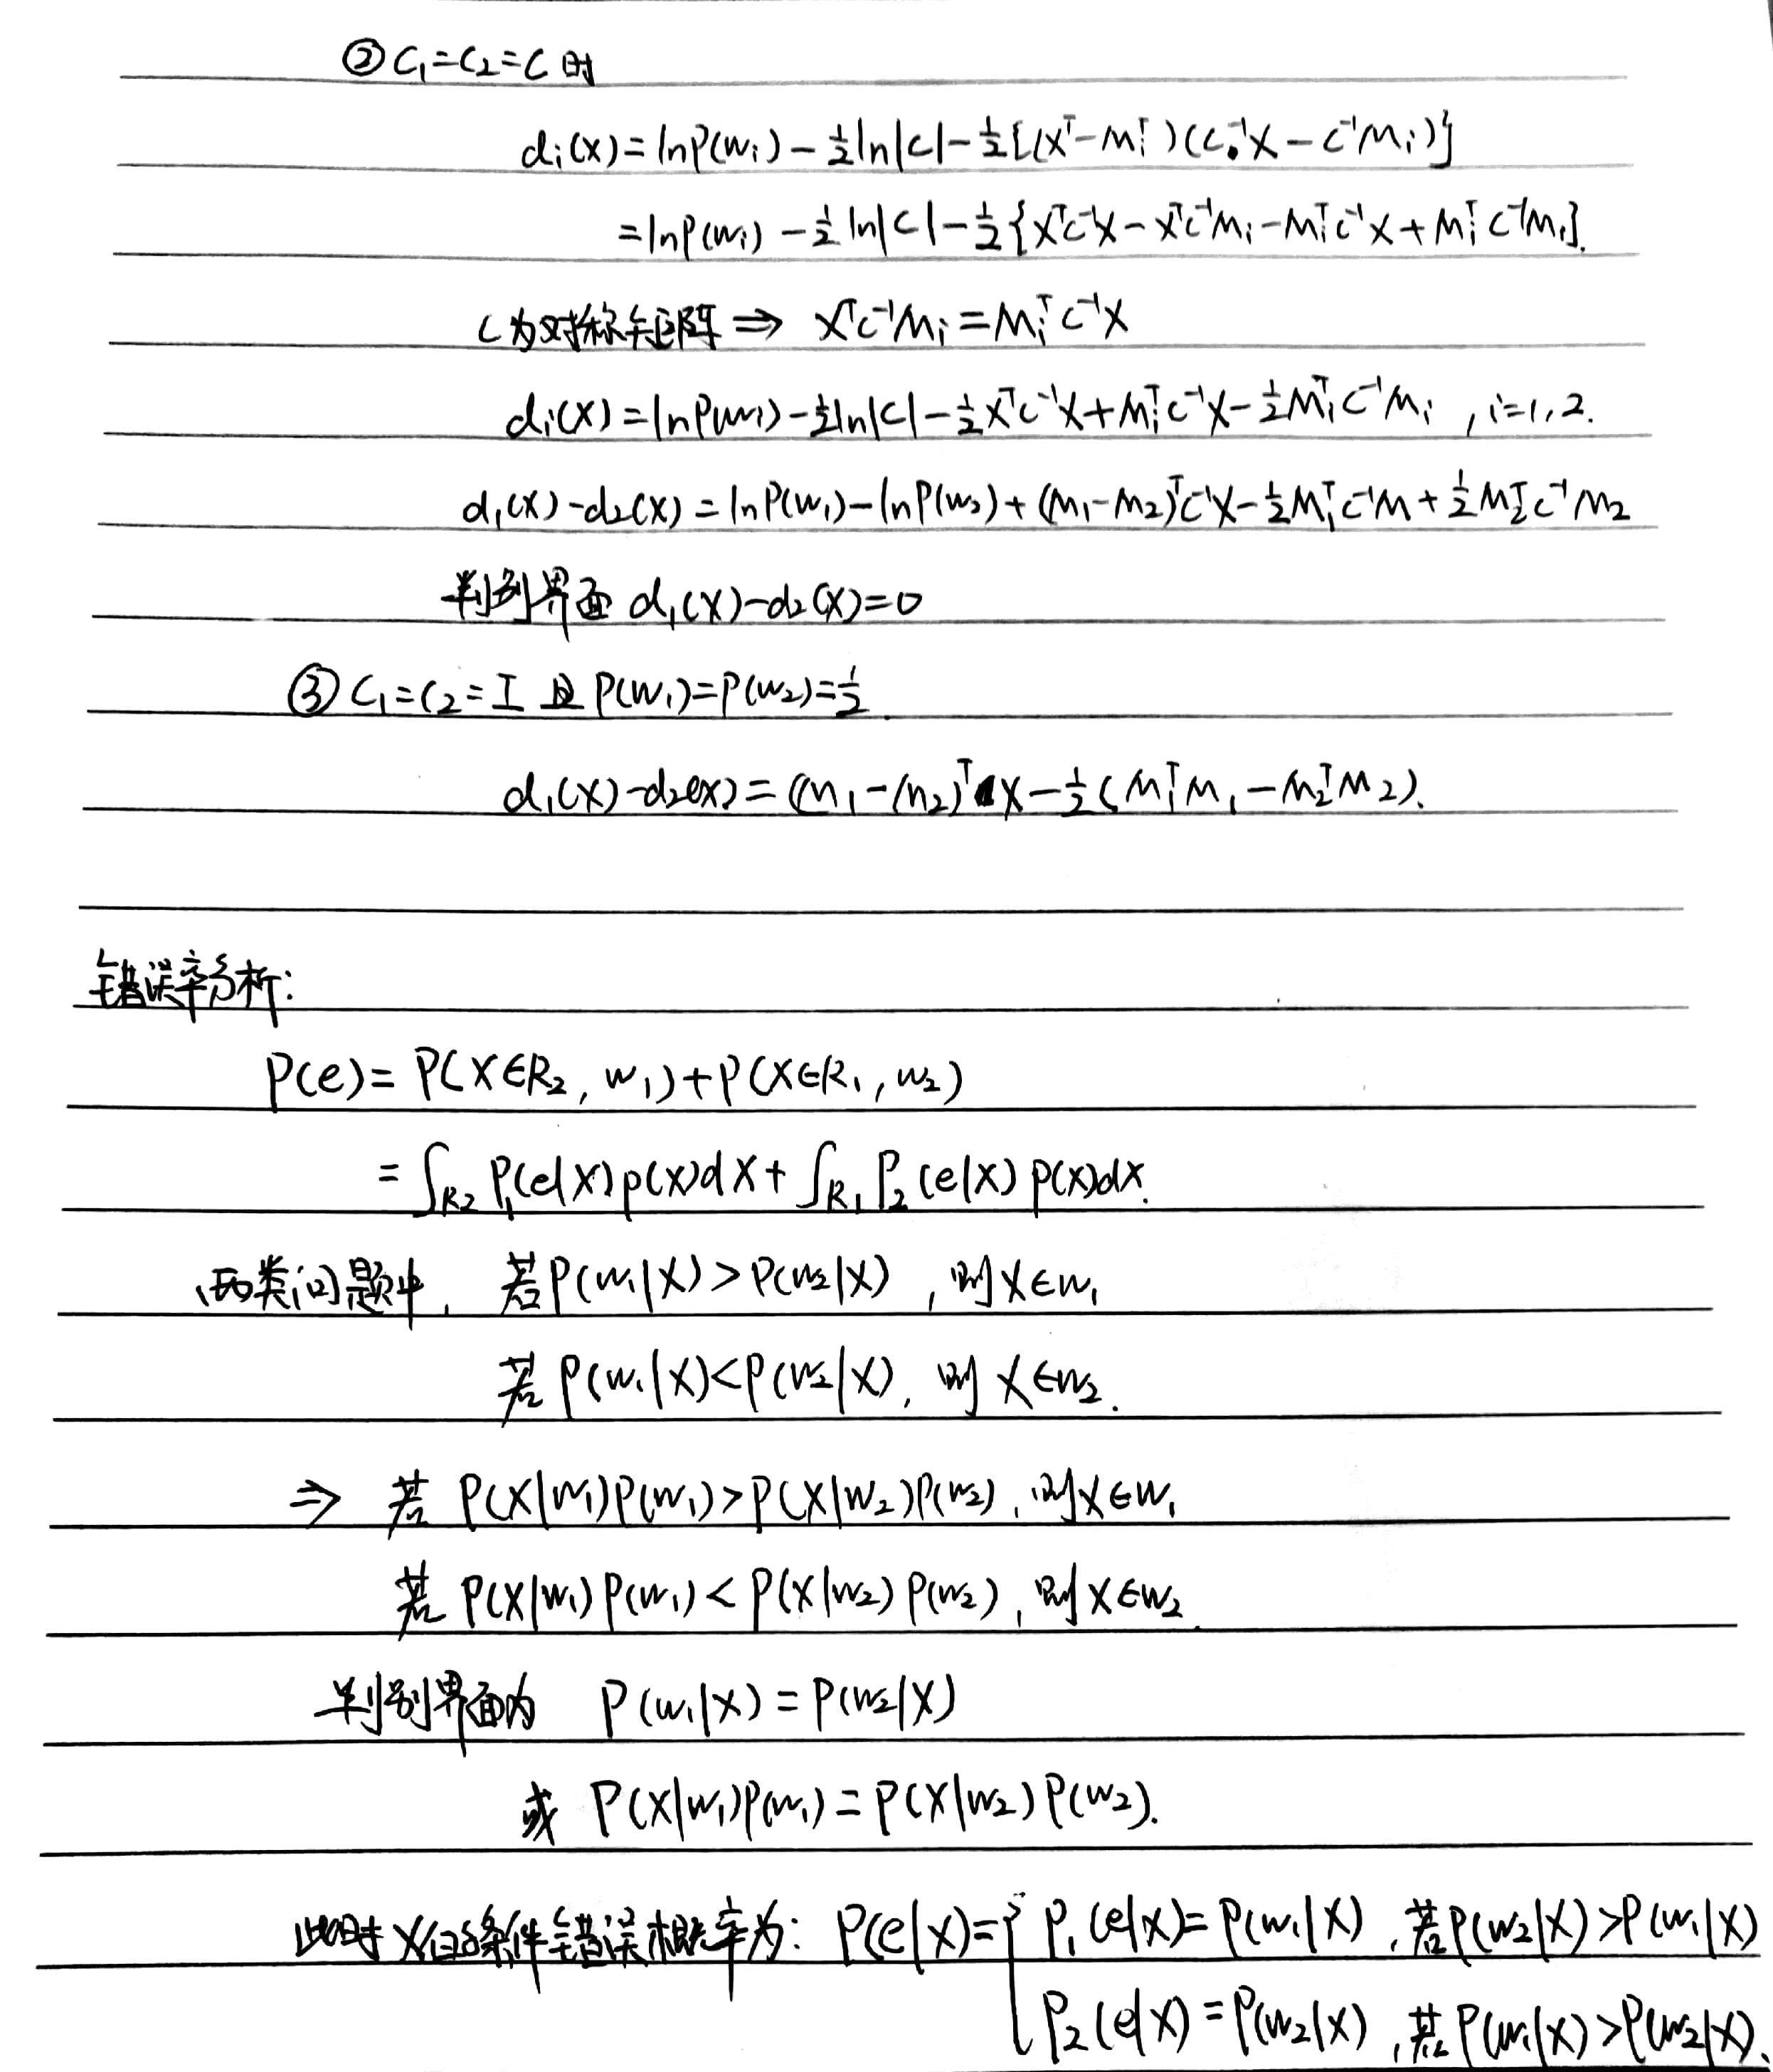 ② C₁=C₂=C 时
dᵢ(x) = lnP(wᵢ) - ½ln|C| - ½{(Xᵀ-Mᵢᵀ)(C⁻¹X - C⁻¹Mᵢ)}
= lnP(wᵢ) - ½ln|C| - ½{XᵀC⁻¹X - XᵀC⁻¹Mᵢ - MᵢᵀC⁻¹X + MᵢᵀC⁻¹Mᵢ}.
C为对称矩阵 ⇒ XᵀC⁻¹Mᵢ = MᵢᵀC⁻¹X
dᵢ(X) = lnP(wᵢ) - ½ln|C| - ½XᵀC⁻¹X + MᵢᵀC⁻¹X - ½MᵢᵀC⁻¹Mᵢ , i=1,2.
d₁(X)-d₂(X) = lnP(w₁) - lnP(w₂) + (M₁-M₂)ᵀC⁻¹X - ½M₁ᵀC⁻¹M + ½M₂ᵀC⁻¹M₂
判别界面 d₁(X)-d₂(X)=0
③ C₁=C₂=I 且 P(w₁)=P(w₂)=½.
d₁(X)-d₂(X) = (M₁-M₂)ᵀX - ½(M₁ᵀM₁ - M₂ᵀM₂).
错误率分析:
P(e) = P(X∈R₂, w₁) + P(X∈R₁, w₂)
= ∫R₂ P₁(e|X)p(x)dX + ∫R₁ P₂(e|X)p(x)dx.
两类问题中, 若P(w₁|X) > P(w₂|X), 则X∈w₁
若P(w₁|X) < P(w₂|X), 则X∈w₂.
⇒ 若 P(X|w₁)P(w₁) > P(X|w₂)P(w₂), 则X∈w₁
若 P(X|w₁)P(w₁) < P(X|w₂)P(w₂), 则X∈w₂.
判别界面为 P(w₁|X) = P(w₂|X)
或 P(X|w₁)P(w₁) = P(X|w₂)P(w₂).
此时X的条件错误概率为: P(e|X) = { P₁(e|X) = P(w₁|X), 若P(w₂|X) > P(w₁|X)
P₂(e|X) = P(w₂|X), 若P(w₁|X) > P(w₂|X).